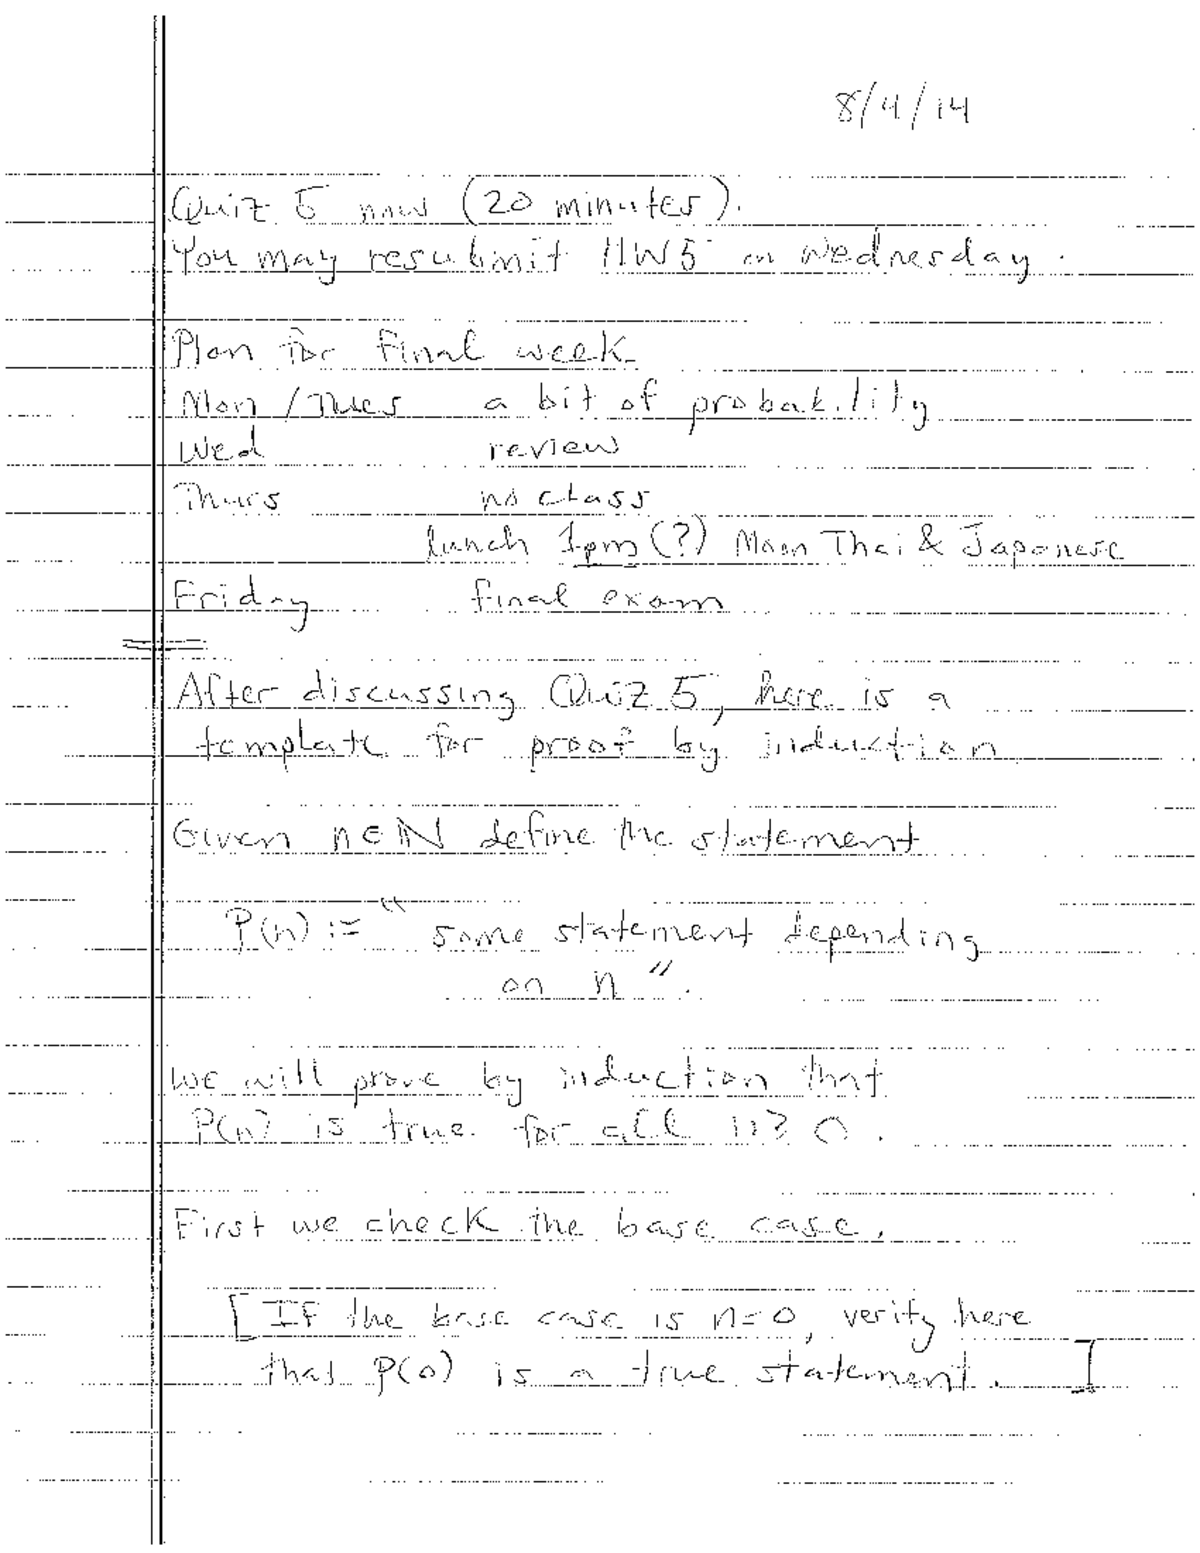 8/4/14
Quiz 5 now (20 minutes).
You may resubmit HW5 on Wednesday.
Plan for final week
Mon/Tues a bit of probability
Wed review
Thurs no class
lunch 1pm (?) Moon Thai & Japanese
Friday final exam
After discussing Quiz 5, here is a
template for proof by induction
Given n∈ℕ define the statement
P(n) := "some statement depending
on n".
We will prove by induction that
P(n) is true for all n≥0.
First we check the base case.
[If the base case is n=0, verify here
that P(0) is a true statement.]